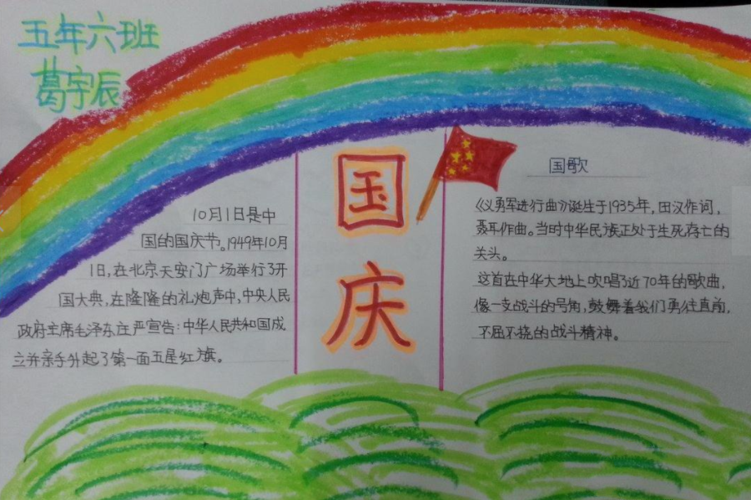 五年六班
葛宇辰
10月1日是中
国的国庆节。1949年10月
1日,在北京天安门广场举行了开
国大典,在隆隆的礼炮声中,中央人民
政府主席毛泽东庄严宣告:中华人民共和国成
立并亲手升起了第一面五星红旗。
国
庆
国歌
《义勇军进行曲》诞生于1935年,田汉作词,
聂耳作曲。当时中华民族正处于生死存亡的
关头。
这首在中华大地上吹唱了近70年的歌曲,
像一支战斗的号角,鼓舞着我们勇往直前,
不屈不挠的战斗精神。